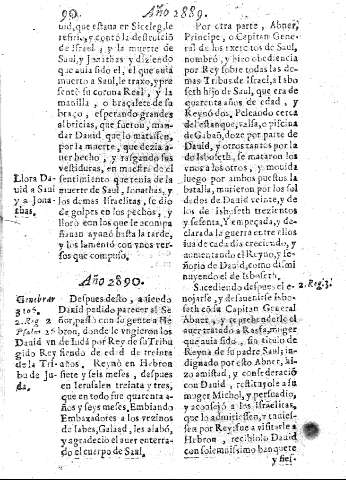 90
Año 2889.
uid, que estaua en Siceleg, le
refirió, y contó la destruicion
de Israel, y la muerte de
Saul, y Jonathas y diziendo
que auia sido el, el que auia
muerto a Saul, le traxo, y pre
sentò su corona Real, y la
manilla, o braçalete de su
braço, esperando grandes
albricias, que fueron, man-
dar Dauid que lo matassen,
por la muerte, que dezia a-
uer hecho, y rasgando sus
vestiduras, en muestra del
sentimiento que tenia de la
muerte de Saul, Jonathas, y
los demas Israelitas, se dio
de golpes en los pechos, y
lloro con los que le acompa
ñauan ayunò hasta la tarde,
y los lamentó con vnos ver-
sos que compuso.
Llora Da-
uid a Saul
y a Jona-
thas.
Año 2890.
Genebrar
2. Reg 2
Dauid vn
gido Rey
de la Tri-
bu de Ju-
da.
Despues desto, auiendo
Dauid pedido parecer al Se
ñor, passò con su gente a He
bron, donde le vngieron los
de Iuda por Rey de su Tribu
siendo de edad de treinta
años, Reynò en Hebron
siete y seis meses, despues
en Ierusalen treinta y tres,
que en todo fue quarenta a-
ños y seys meses, Embiando
Embaxadores a los vezinos
de Iabes, Galaad, les alabò,
y agradecio el auer enterra-
do el cuerpo de Saul.
Por otra parte, Abner,
Principe, o Capitan Gene-
ral de los exercitos de Saul,
nombrò, y hizo obediencia
por Rey sobre todas las de-
mas Tribus de Israel, a Isbo
seth hijo de Saul, que era de
quarenta años de edad, y
Reynó dos, Peleando cerca
del estanque, valsa, o piscina
de Gabaon, doze por parte de
Dauid, y otros tantos por la
do de Isboseth, se mataron los
vnos a los otros, y mouida
luego por ambos puestos la
batalla, murieron por los sol
dados de Dauid veinte, y de
los de Isboseth trezientos
y sesenta, Y empeçada, y de-
clarada la guerra entre ellos
iua de cada dia creciendo, y
aumentando el Reyno, y Se-
ñorio de Dauid, como dismi
nuyendo el de Isboseth.
Sucediendo despues el e-
nojarse, y desauenirse Isbo-
seth con su Capitan General
Abner, y reprehenderle el
auer tratado a Rasfa, muger
que auia sido, sin titulo de
Reyna de su padre Saul; in-
dignado por esto Abner, hi-
zo amistad, y confederación
con Dauid, restituyole a su
muger Michol, y persuadio,
y aconsejò a los Israelitas,
que lo admitiessen, y tuuies-
sen por Rey; fue a visitarle a
Hebron, recibiolo Dauid
con solemnissimo banquete
y fies-
2. Reg. 3.